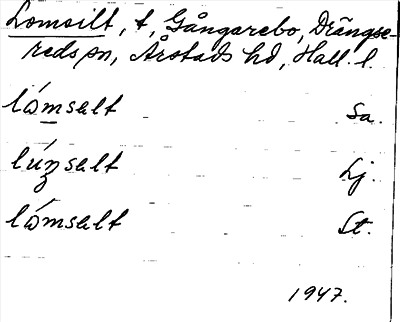 Lomsilt, t, Gångarebo, Drängse-
redspn, Årstads hd, Hall. l.
lómsalt Sa.
lúnsalt Lj.
lómsalt St.
1947.